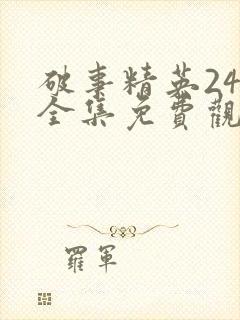 破事精英24
全集免費觀
羅軍